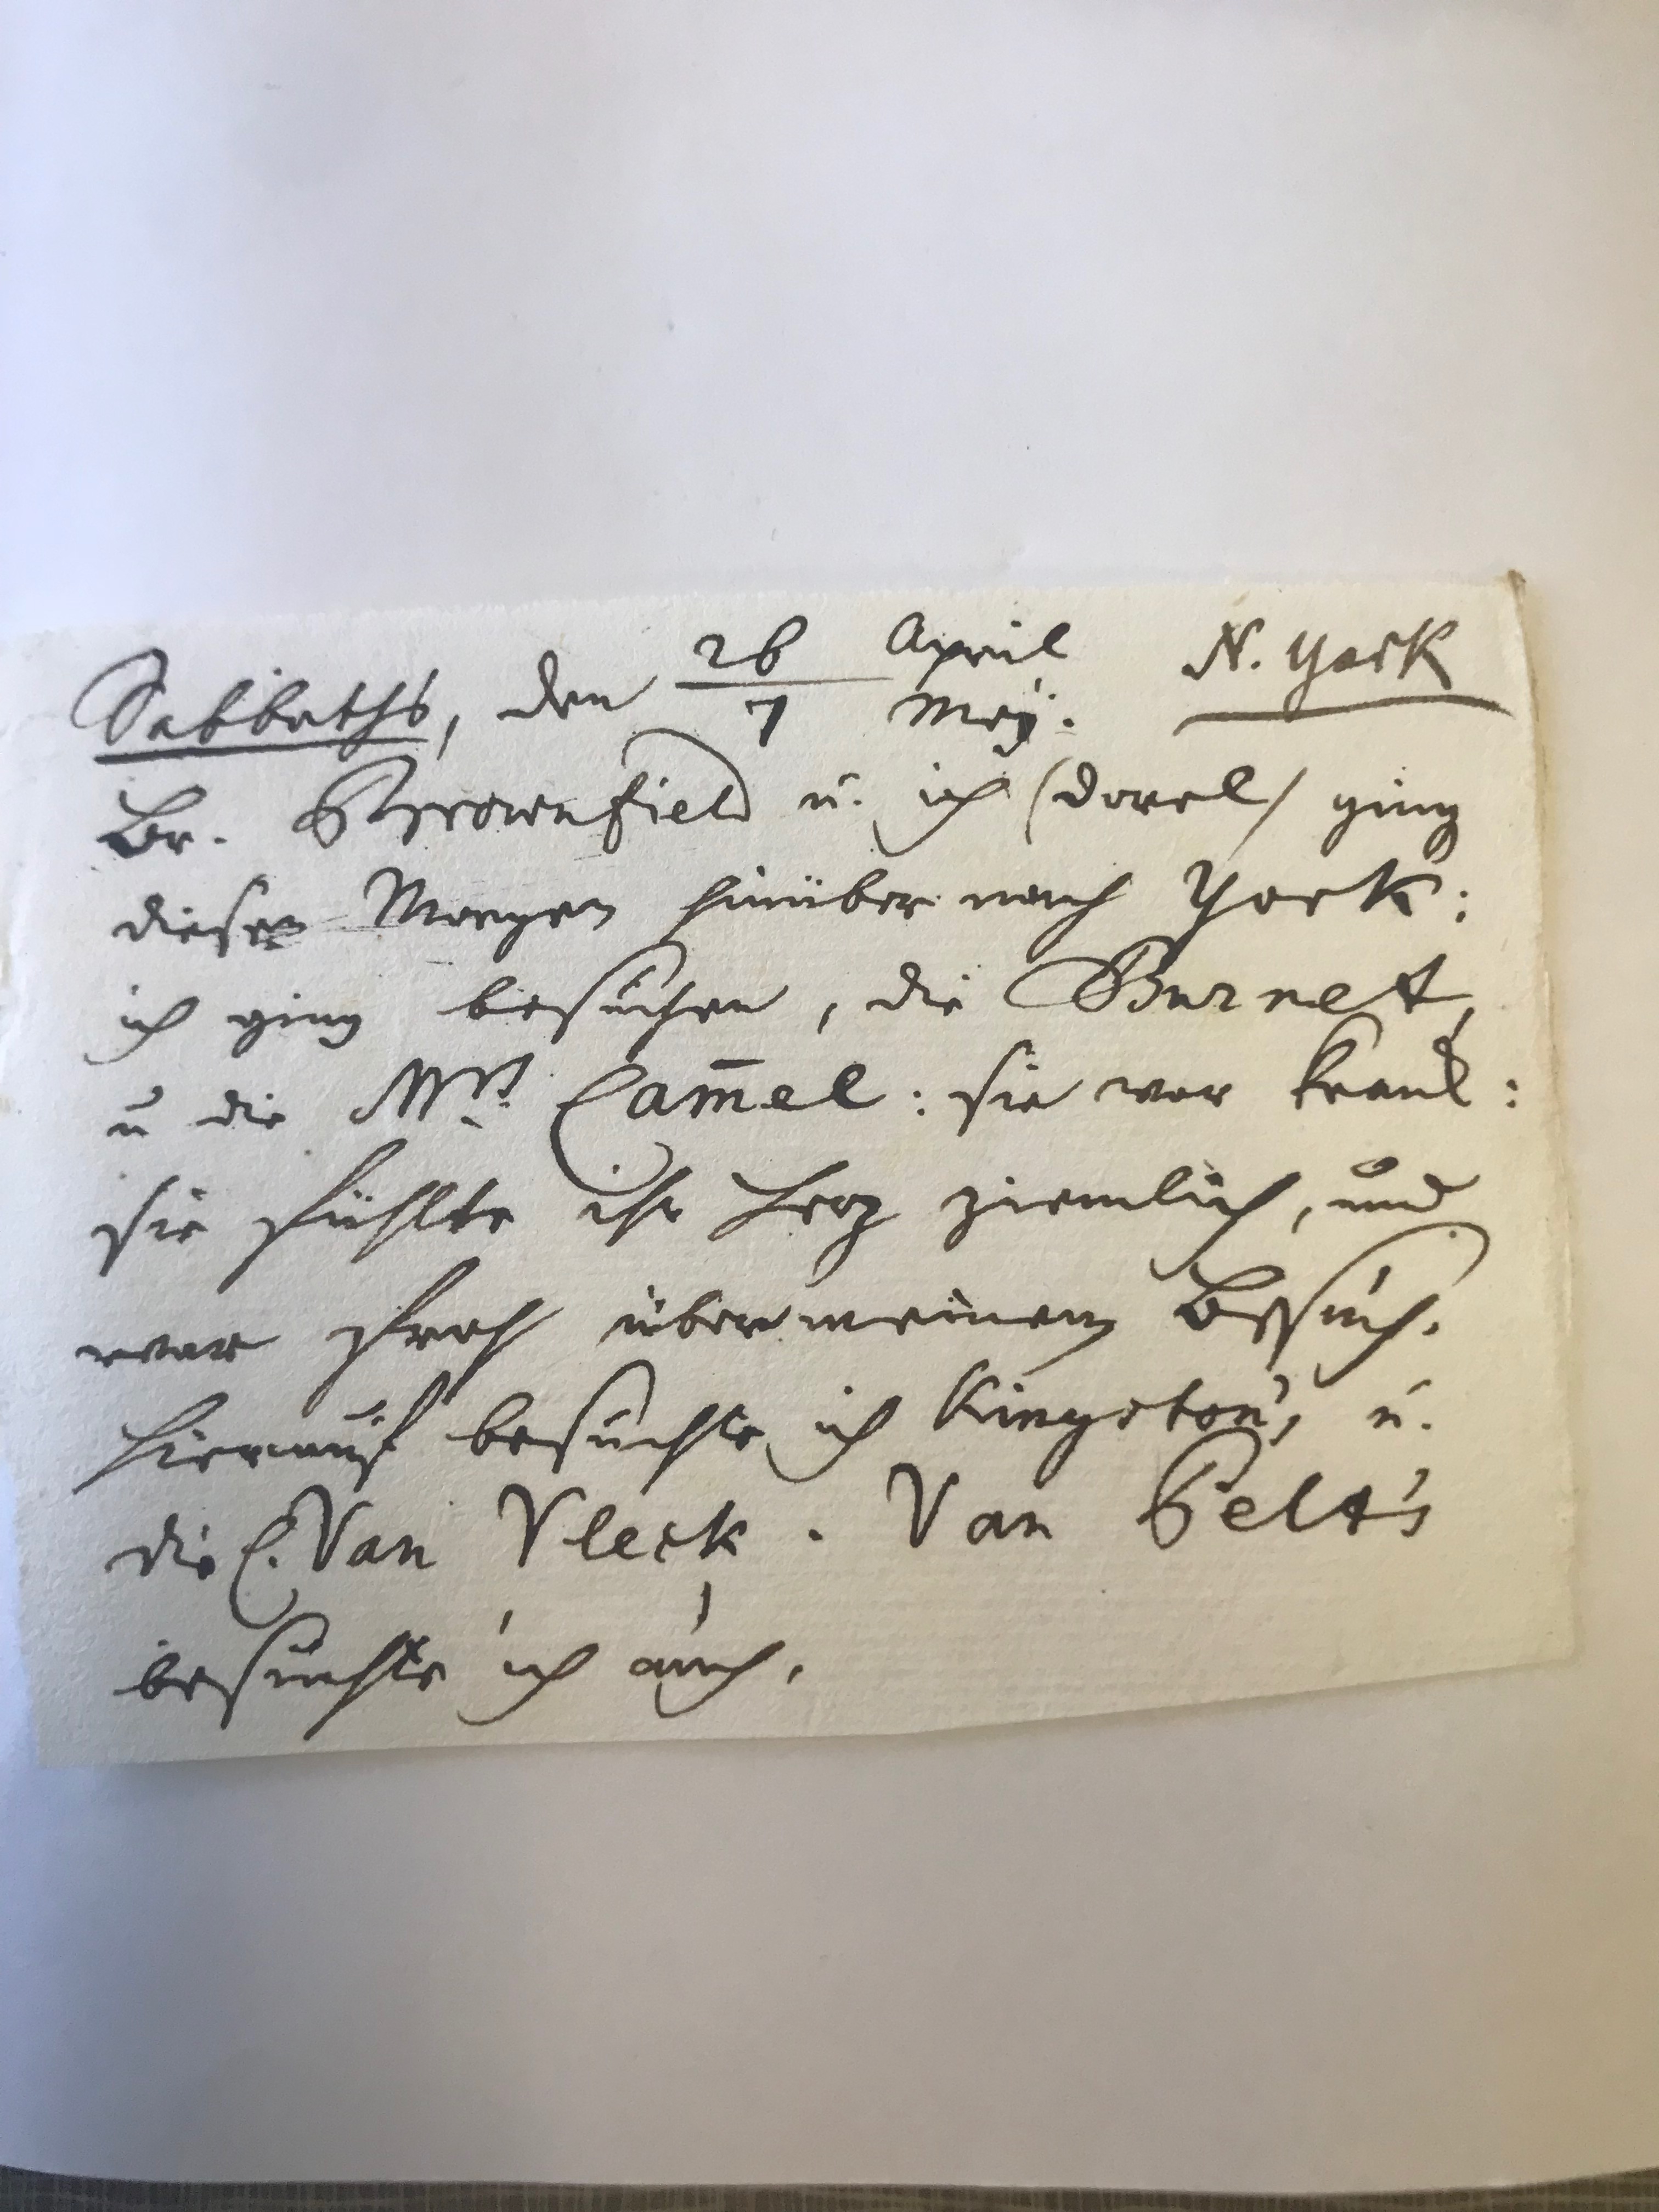 Sabbaths, den 26/7 April/Mey. N. York
Br. Brownfield u. ich (Dorel) ging
diesen Morgen hinüber nach York:
ich ging besuchen, die Burnet,
u die Mrs. Cam̄el: sie war krank:
sie fühlte ihr Herz ziemlich, und
war froh über meinem Besuch.
Hierauf besuchte ich Kingston's u.
die C. Van Vleck. Van Pelt's
besuchte ich auch.